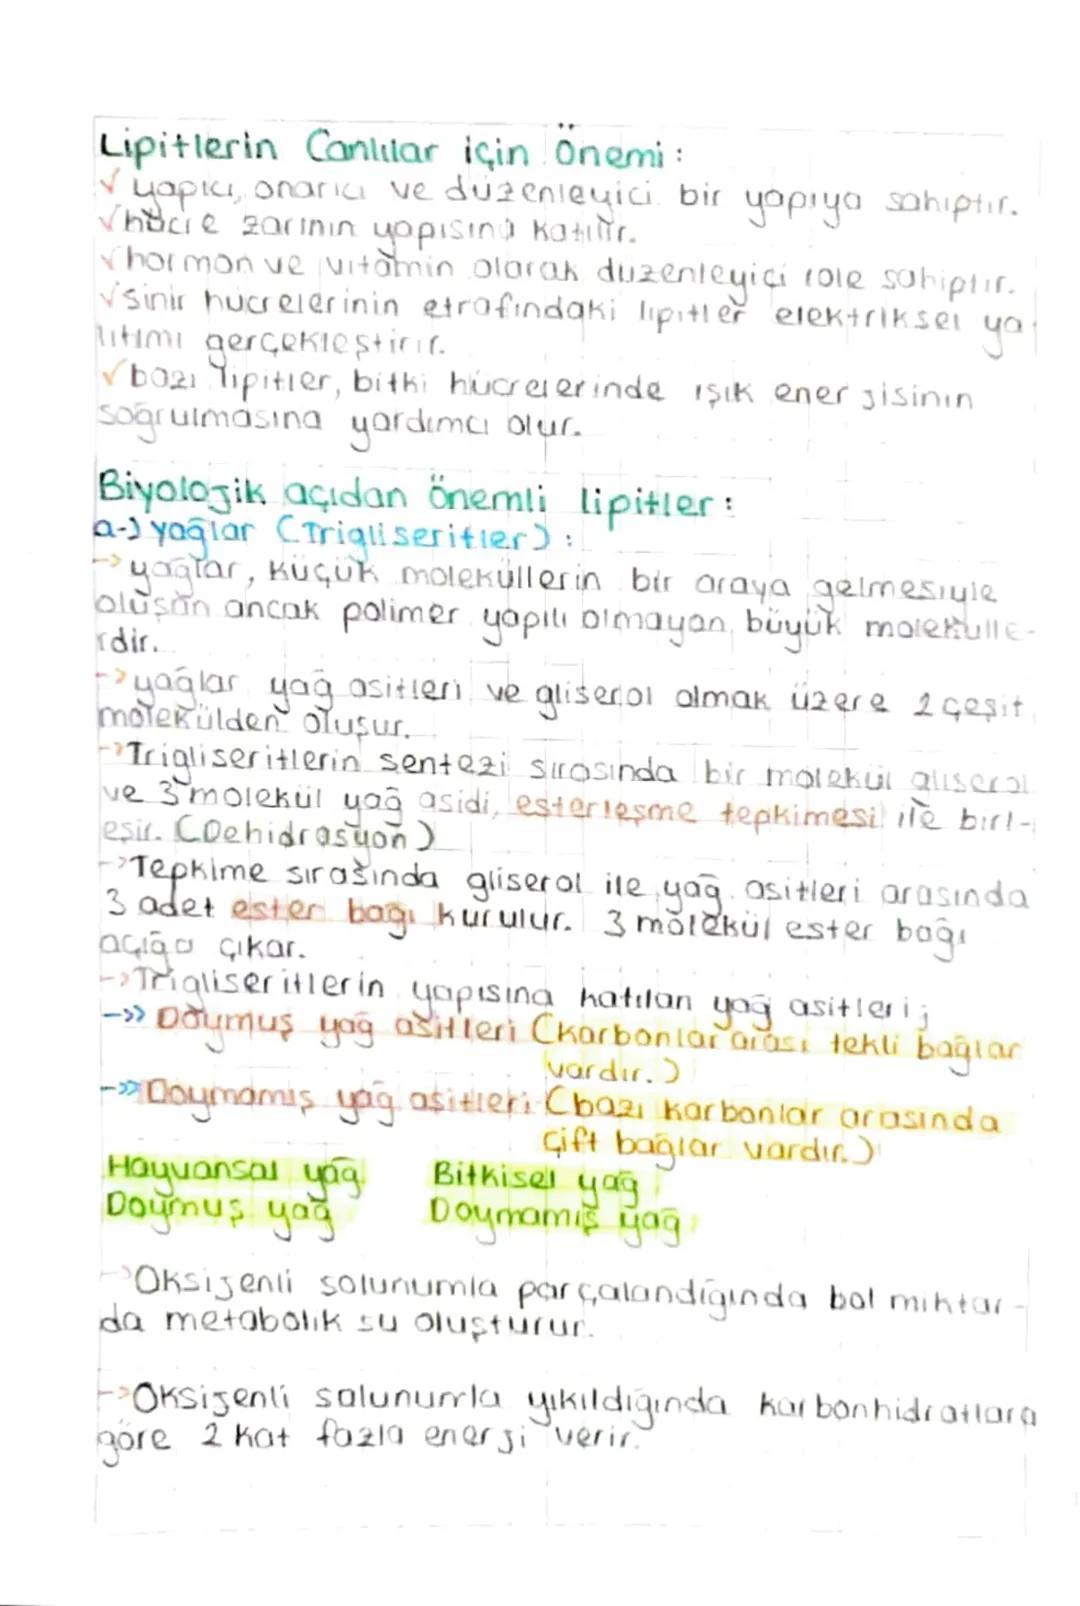 Lipitlerin Canlılar için Önemi:
✓ yapıcı, onarıcı ve düzenleyici bir yapıya sahiptir.
✓ hücre zarının yapısına katılır.
✓ hormon ve vitamin olarak düzenleyici role sahiptir.
✓ sinir hücrelerinin etrafındaki lipitler elektriksel ya-
lıtımı gerçekleştirir.
✓ bazı lipitler, bitki hücrelerinde ışık enerjisinin
soğrulmasına yardımcı olur.
Biyolojik açıdan önemli lipitler:
a-) yağlar (Trigliseritler):
-> yağlar, küçük moleküllerin bir araya gelmesiyle
oluşan ancak polimer yapılı olmayan büyük molekülle-
rdir.
-> yağlar yağ asitleri ve gliserol olmak üzere 2 çeşit
molekülden oluşur.
-> Trigliseritlerin sentezi sırasında bir molekül gliserol
ve 3 molekül yağ asidi, esterleşme tepkimesi ile birl-
eşir. (Dehidrasyon)
-> Tepkime sırasında gliserol ile yağ asitleri arasında
3 adet ester bağı kurulur. 3 molekül ester bağı
açığa çıkar.
-> Trigliseritlerin yapısına katılan yağ asitleri;
->> Doymuş yağ asitleri (karbonlar arası tekli bağlar
vardır.)
->> Doymamış yağ asitleri (bazı karbonlar arasında
çift bağlar vardır.)
Hayvansal yağ Bitkisel yağ
Doymuş yağ Doymamış yağ
-> Oksijenli solunumla parçalandığında bol miktar-
da metabolik su oluşturur.
-> Oksijenli solunumla yıkıldığında karbonhidratlara
göre 2 kat fazla enerji verir.